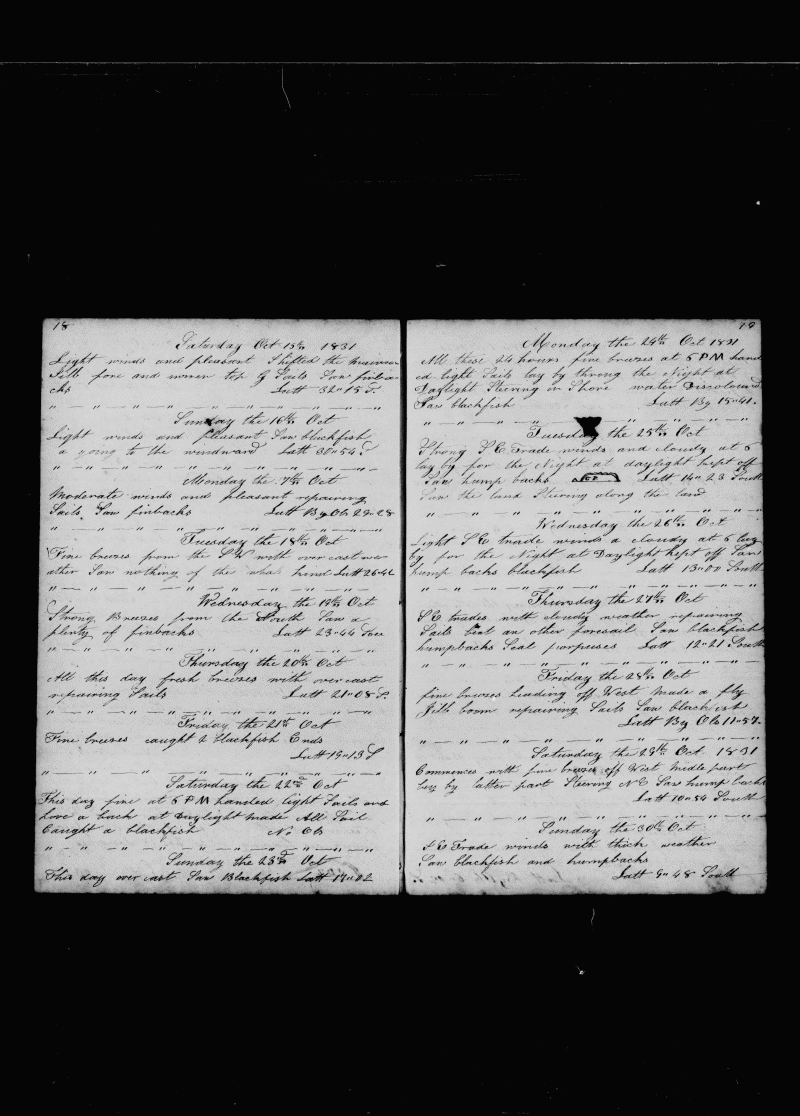 18
Saturday Oct 15th 1831
Light winds and pleasant Shifted the
Gibb fore and mizen top G Sails Saw finba
cks Latt 32"15 S.
Sunday the 16th Oct
Light winds and pleasant Saw blackfish
a going to the windward Latt 30"54 S
Monday the 17th Oct
Moderate winds and pleasant repairing
Sails Saw finbacks Latt By Ob 29"28
Tuesday the 18th Oct
Fine breezes from the with over cast we
ather Saw nothing of the whale kind Latt 26"
Wednesday the 19th Oct
Strong Breezes from the South Saw a
plenty of finbacks Latt 23"44
Thursday the 20th Oct
All this day fresh breezes with over cast
repairing Sails Latt 21"08 S.
Friday the 21st Oct
Fine breezes caught 2 blackfish Ends
Latt 19"13 S
Saturday the 22nd Oct
This day fine at 5 PM handed light Sails and
hove a back at Daylight made All Sail
Caught a blackfish No Ob
Sunday the 23rd Oct
This day over cast Saw Blackfish Latt 17"02
19
Monday the 24th Oct 1831
All these 24 hours fine breezes at 5 PM hand
ed light Sails lay by throug the Night at
Daylight Steering in Shore water Discoloured
Saw blackfish Latt By 15"41.
Tuesday the 25th Oct
Strong S E Trade winds and cloudy at 6
lay by for the Night at daylight kept off
Saw hump backs Latt 14"23 South
Saw the land Steering along the land
Wednesday the 26th Oct
Light S E trade winds a cloudy at 6 lay
by for the Night at Daylight kept off Saw
hump backs blackfish Latt 13"00 South
Thursday the 27th Oct
S E trades with cloudy weather repairing
Sails bent an other foresail Saw blackfish
humpbacks Seal porpoises Latt 12"21 South
Friday the 28th Oct
fine breezes heading off West made a fly
Jibb boom repairing Sails Saw blackfish
Latt By Ob 11"57.
Saturday the 29th Oct 1831
Commences with fine breezes off West midle part
lay by latter part Steering N E Saw hump backs
Latt 10"54 South
Sunday the 30th Oct
S E Trade winds with thick weather
Saw blackfish and humpbacks
Latt 9"48 South